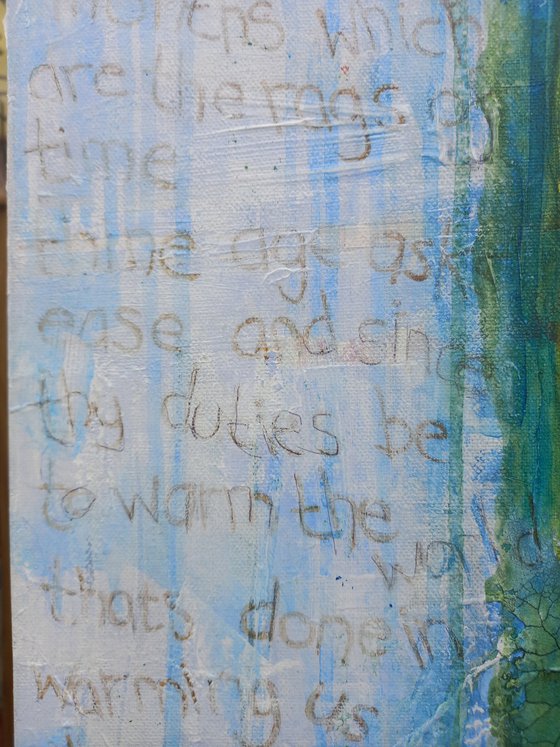 months which
are the rags of
time
thine age ask
ease and since
thy duties be
to warm the
world
thats done in
warming us